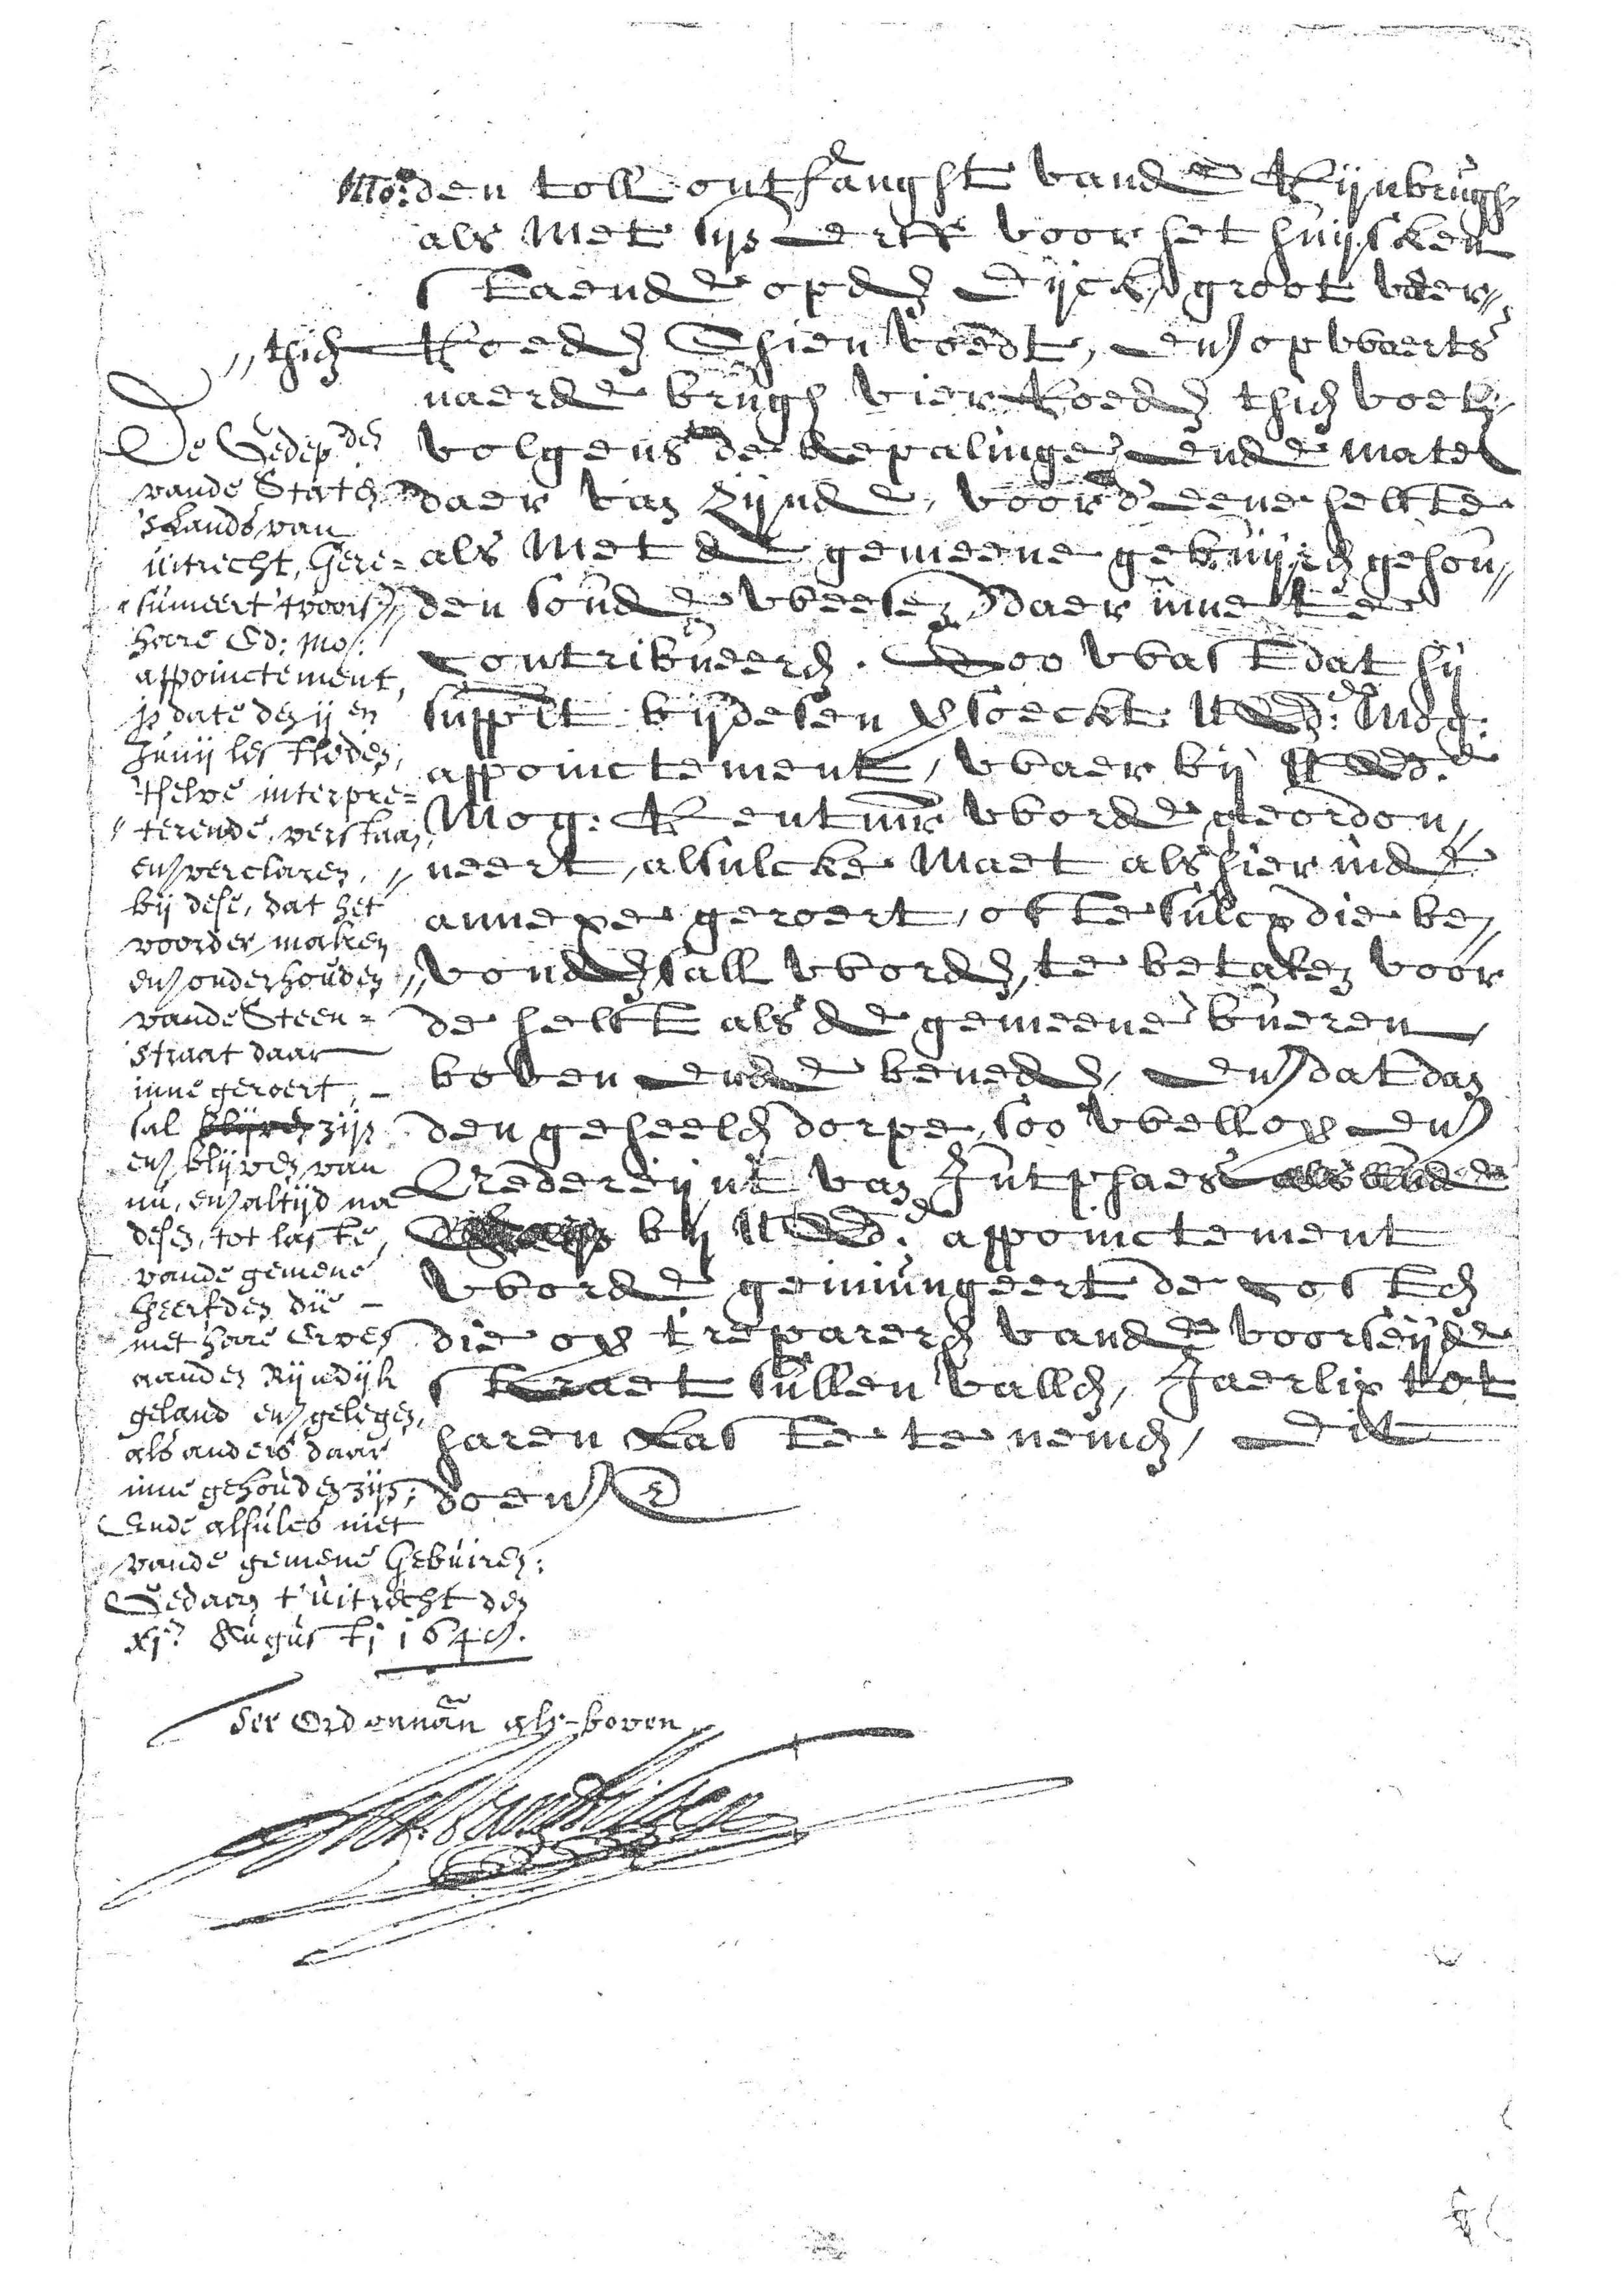 Mo: den toll ontfanght vande Rijnbrugh
als met sijn erff voor het huijsken
staende opden dijck, groot veer„
„thien Roeden thien voedt, ende opwaerts
naerde brugh vier Roeden thien voet,
volgens de bepalinge ende mate
daer van zijnde, voor d'eene helfte
als met de gemeene gebuijren gehou„
den soude weesen daer inne te
contribueeren. Soo wast dat hij
supplt bij desen versoeckt U Ed: Mog:
appoinctement, waer bij U Ed:
Mog: Rentmr worde geordon„
„neert, alsulcke maet als hier inde
annexe geroert, ofte sulcx die be„
„vonden sall worden, te betalen voor
de helft als de gemeene bueren
boven ende beneden, ende dat dan
den geheelen dorpe, soo wel lop ende
Vredereijnt van Jutphaes
bij U Ed: appoinctement
worde geiniungeert de costen
die op t repareren vande voorseijde
straet sullen vallen, Jaerlix tot
haren laste te nemen, dit
doende
De Gedepden
vande Staten
'sLands van
Uitrecht, Gere=
„sumeert 'tvoors.
hare Ed: Mo:
appoinctement,
in date den ij en
Junij lestleden,
'tselve interpre=
„terende, verstaan
ende verclaren
bij dese, dat het
voorder maken
ende onderhouden
vande Steen=
straat daar
inne geroert,
sal blijven zijn
ende blijven van
nu, ende altijd na
desen, tot laste
vande gemene
Geerfden die
met hare erves
aanden Rijndijk
geland ende gelegen,
als anders daar
inne gehouden zijn;
Ende alsulcs niet
vande gemene Gebuiren:
Gedaen t'Uitrecht den
xjen Augusti 1649.
Ter Ordonnan als boven